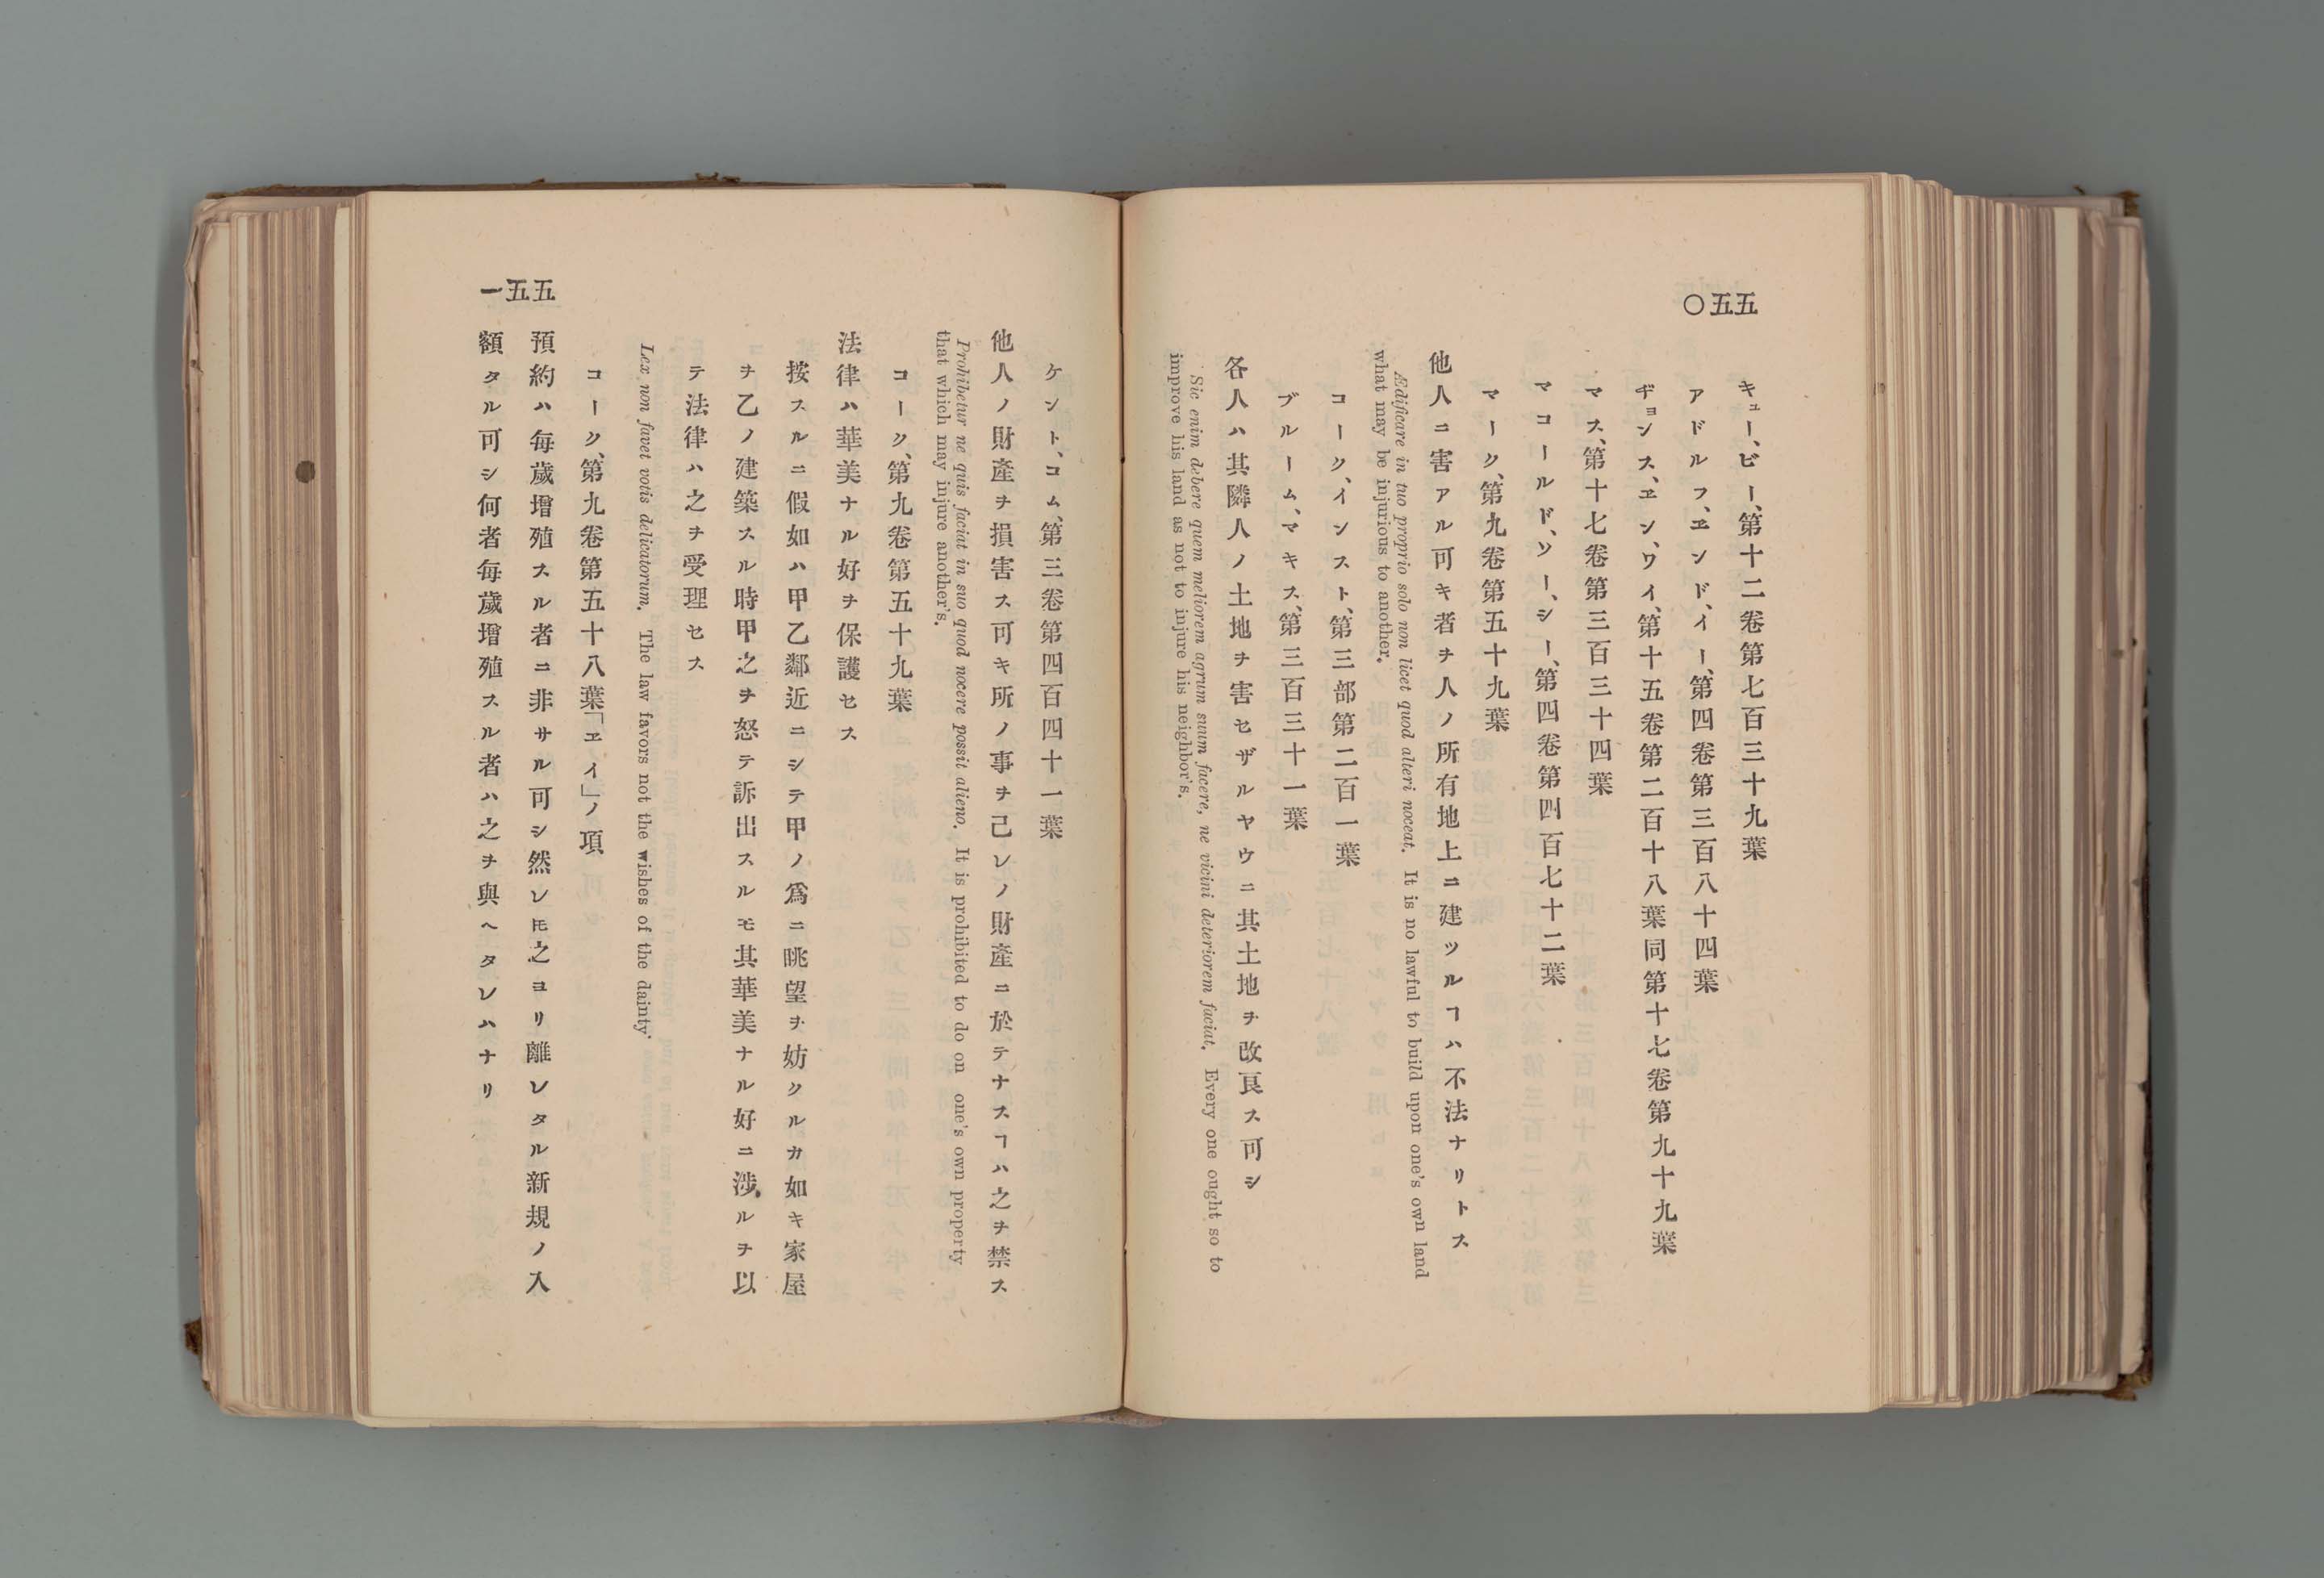 五五〇
キュー、ビー、第十二卷第七百三十九葉
アドルフ、ヱンド、イー、第四卷第三百八十四葉
ヂョンス、ヱン、ワイ、第十五卷第二百十八葉同第十七卷第九十九葉
マス、第十七卷第三百三十四葉
マコールド、ソー、シー、第四卷第四百七十二葉
マーク、第九卷第五十九葉
他人ニ害アル可キ者ヲ人ノ所有地上ニ建ツルヿハ不法ナリトス
Ædificare in tuo proprio solo non licet quod alteri noceat. It is no lawful to build upon one's own land
what may be injurious to another.
コーク、インスト、第三部第二百一葉
ブルーム、マキス、第三百三十一葉
各人ハ其隣人ノ土地ヲ害セザルヤウニ其土地ヲ改良ス可シ
Sic enim debere quem meliorem agrum suum facere, ne vicini deteriorem faciat. Every one ought so to
improve his land as not to injure his neighbor's.
五五一
ケント、コム、第三卷第四百四十一葉
他人ノ財產ヲ損害ス可キ所ノ事ヲ己レノ財產ニ於テナスヿハ之ヲ禁ス
Prohibetur ne quis faciat in suo quod nocere possit alieno. It is prohibited to do on one's own property
that which may injure another's.
コーク、第九卷第五十九葉
法律ハ華美ナル好ヲ保護セス
按スルニ假如ハ甲乙鄰近ニシテ甲ノ爲ニ眺望ヲ妨クルカ如キ家屋
ヲ乙ノ建築スル時甲之ヲ怒テ訴出スルモ其華美ナル好ニ涉ルヲ以
テ法律ハ之ヲ受理セス
Lex non favet votis delicatorum. The law favors not the wishes of the dainty.
コーク、第九卷第五十八葉「ヱイ」ノ項
預約ハ每歲增殖スル者ニ非サル可シ然レ𪜈之ヨリ離レタル新規ノ入
額タル可シ何者每歲增殖スル者ハ之ヲ與ヘタレハナリ